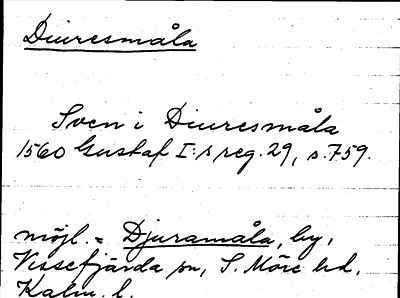 Diuresmåla
Sven i Diuresmåla
1560 Gustaf I:s reg. 29, s. 759.
möjl. = Djuramåla, by,
Vissefjärda sn, S. Möre hd,
Kalm. l.